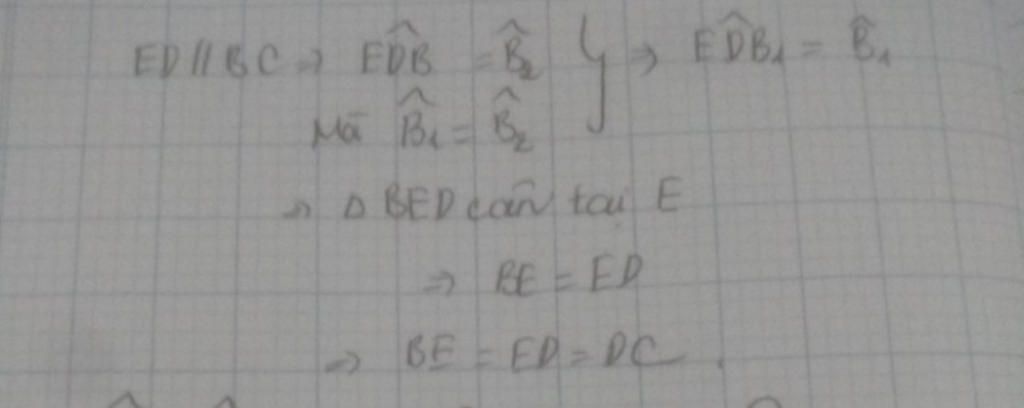 ED // BC => ED̂B = B̂₂ } => ED̂B₁ = B̂₁
Mà B̂₁ = B̂₂
=> Δ BED cân tại E
=> BE = ED
=> BE = ED = DC.